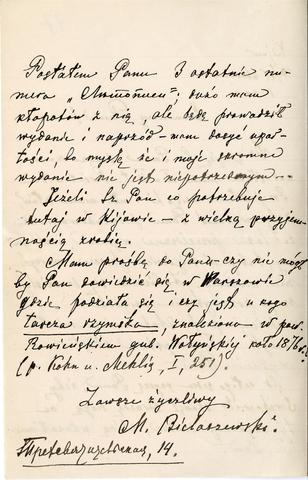 Posłałem Panu 3 ostatnie nu-
mera „ ; dużo mam
kłopotów z nią, ale będę prowadził
wydanie i naprzód - mam dosyć upar-
tości, bo myślę że i moje skromne
wydanie nie jest niepotrzebnym...
Jeżeli Sz. Pan co potrzebuje
tutaj w Kijowie - z wielką przyjem-
nością zrobię.
Mam prośbę do Pana - czy nie mógł
by Pan dowiedzieć się w Warszawie
gdzie podziała się i czy jest u kogo
tarcza rzymska, znaleziona w pow.
Rowieńskim gub. Wołyńskiej koło 1876 r.
(p. Kohn u. Mehlis, I, 251).
Zawsze życzliwy
M. Biełaszewski.
14.